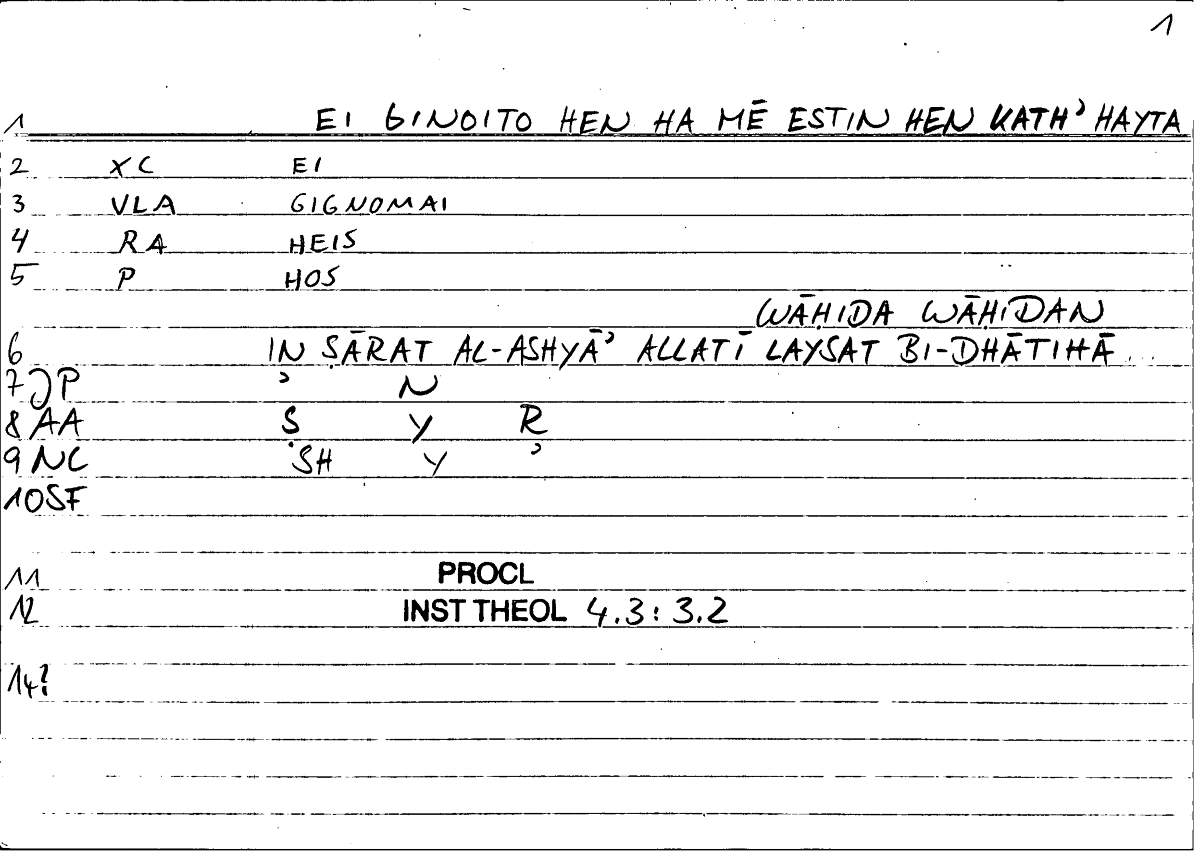 1
1 EI GINOITO HEN HA MĒ ESTIN HEN KATH' HAYTA
2 XC EI
3 VLA GIGNOMAI
4 RA HEIS
5 P HOS
WĀḤIDA WĀḤIDAN
6 IN ṢĀRAT AL-ASHYĀʾ ALLATĪ LAYSAT BI-DHĀTIHĀ
7 JP ʾ N
8 AA Ṣ Y R
9 NC SH Y ʾ
10 SF
11 PROCL
12 INST THEOL 4.3: 3.2
14?